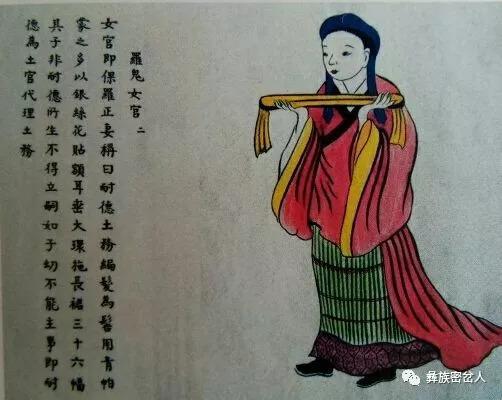 羅鬼女官 二
女官即保羅正妻稱曰耐德土務編髮為髻用青帕
蒙之多以銀絲花貼額耳垂大環拖長裙三十六幅
其子非耐德所生不得立嗣如子幼不能主事即耐
德為土官代理土務
彝族密岔人